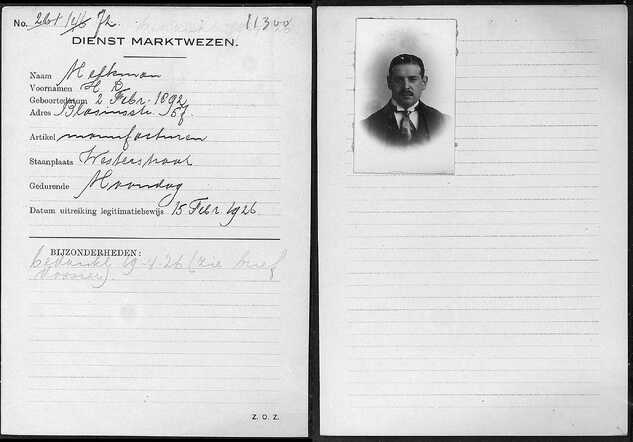 No. 11300
DIENST MARKTWEZEN.
Naam Melkman
Voornamen H D
Geboortedatum 2 Febr. 1892
Adres Blasiusstr
Artikel manufacturen
Staanplaats Westerstraat
Gedurende Maandag
Datum uitreiking legitimatiebewijs 15 Febr 1926
BIJZONDERHEDEN:
bedankt 19-4-26 (zie brief
dossier).
Z. O. Z.